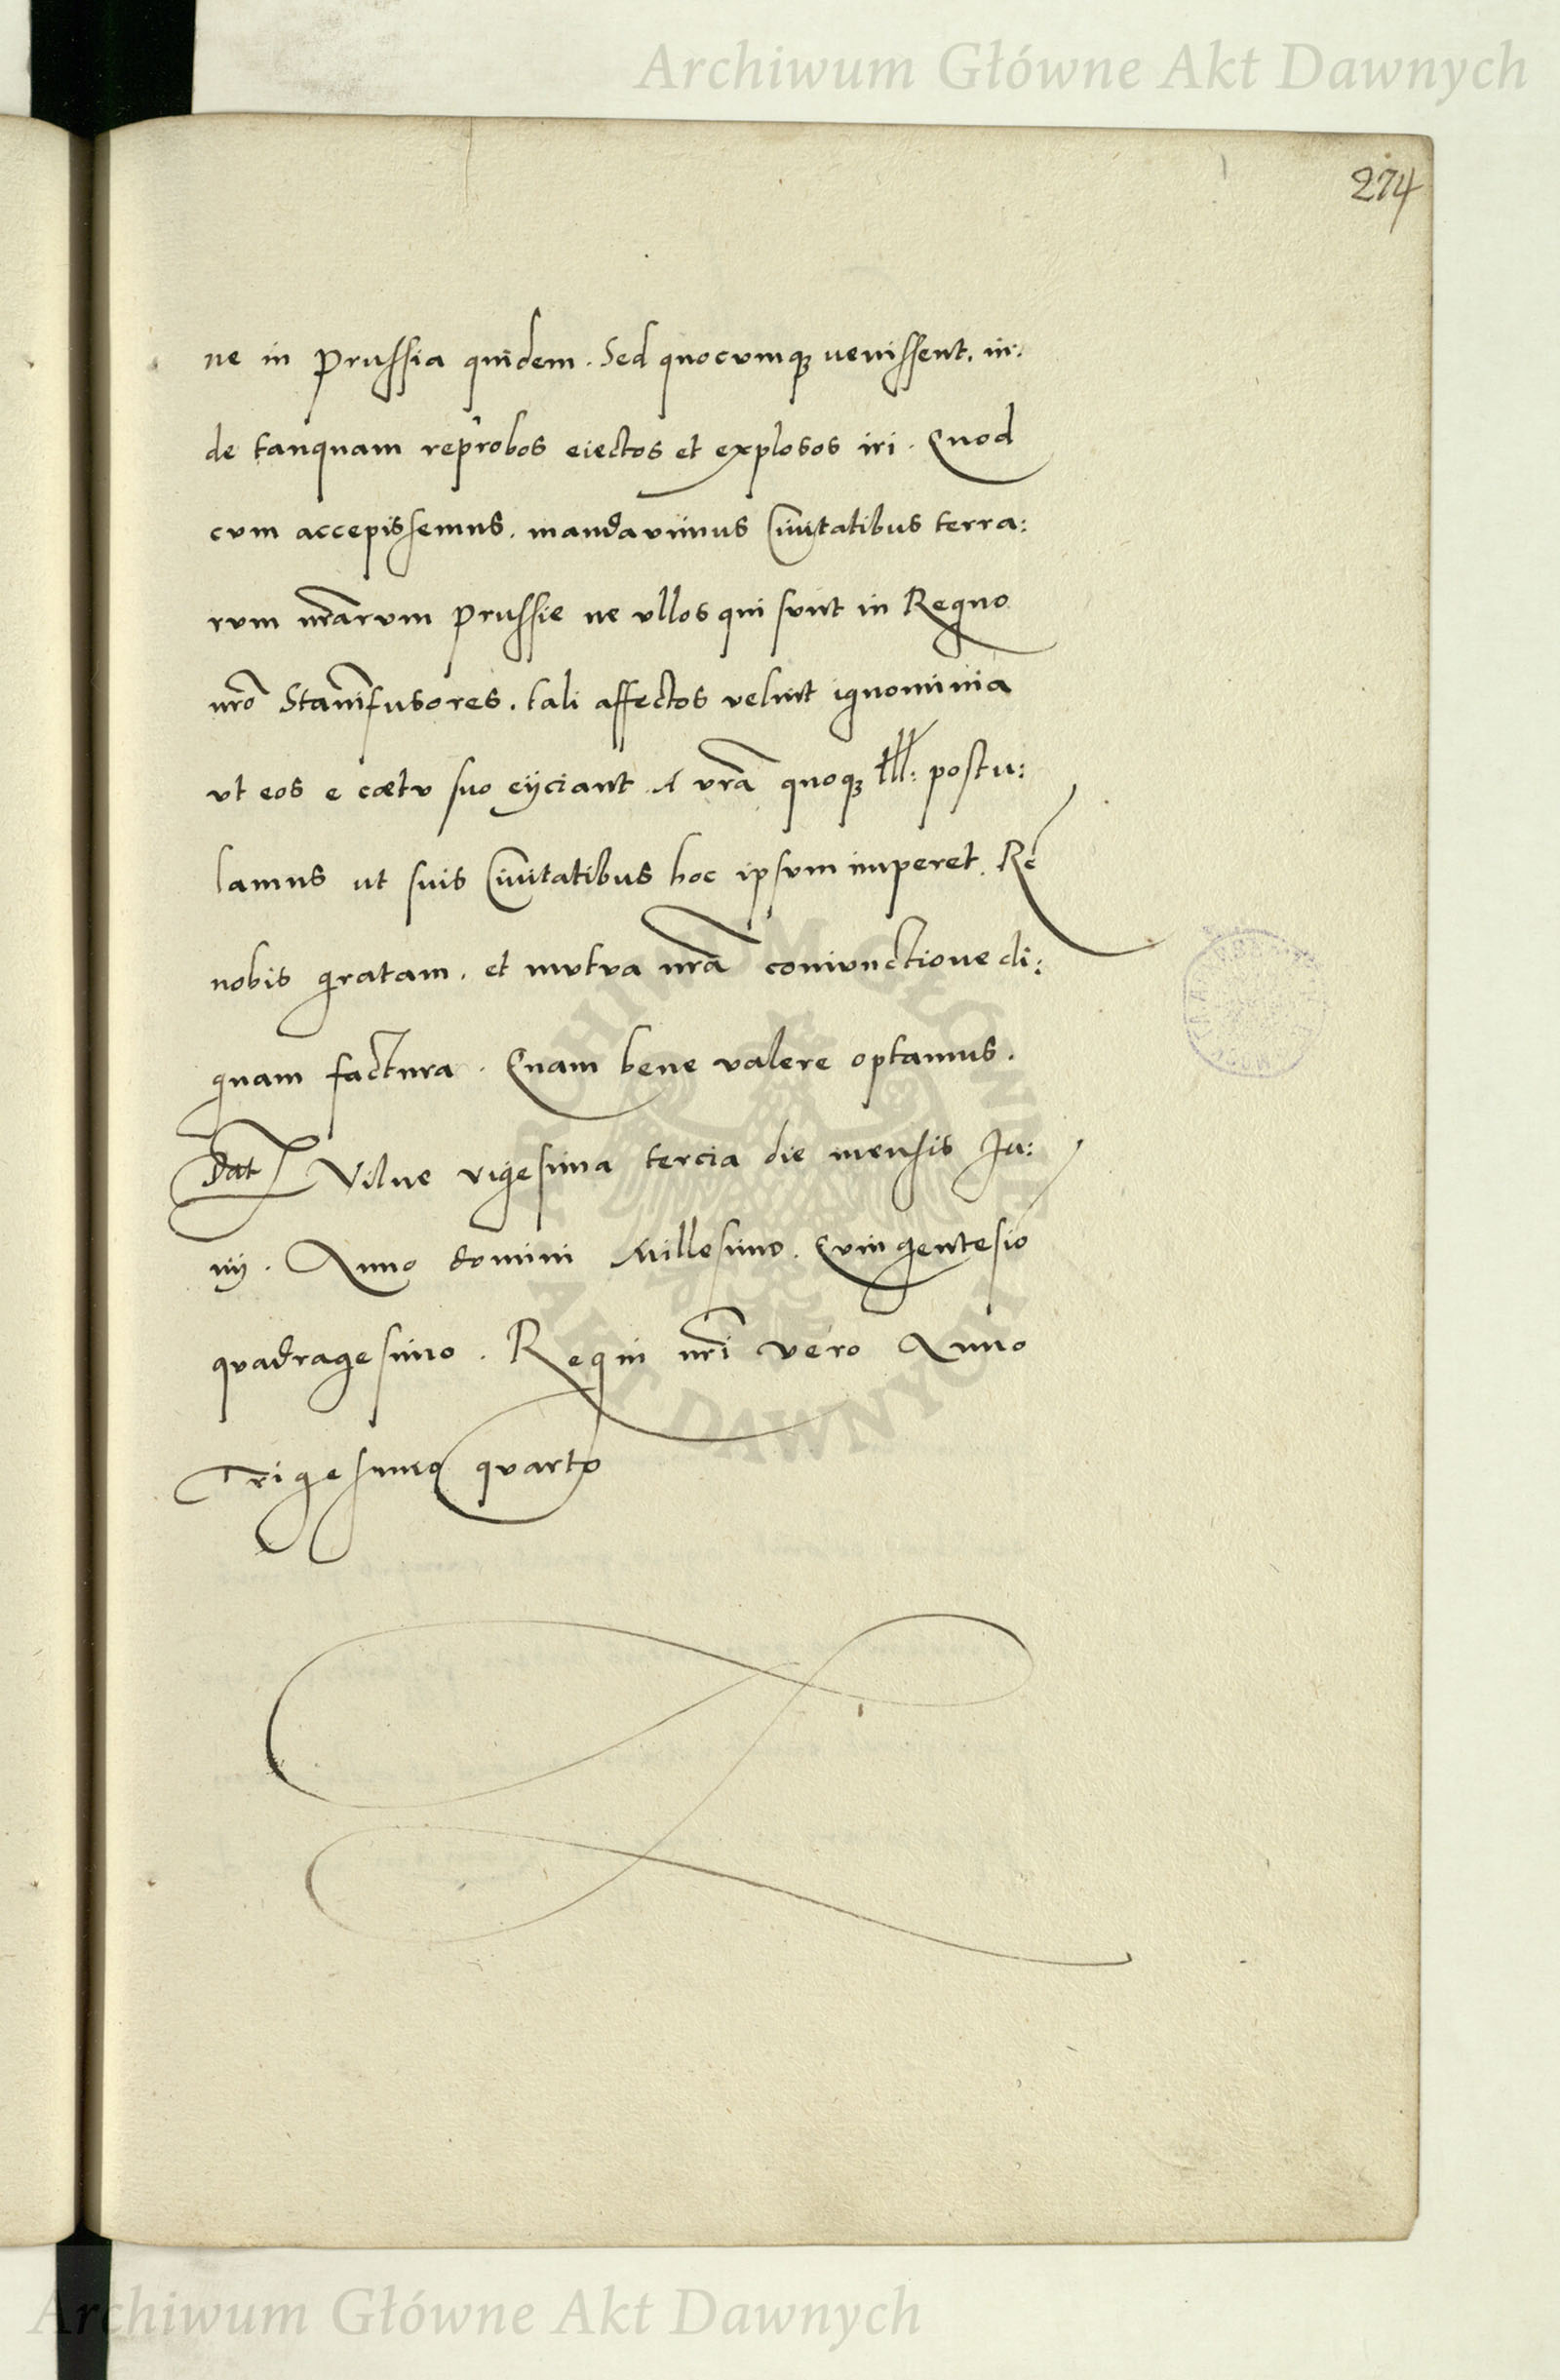 Archiwum Główne Akt Dawnych
274
ne in Prussia quidem. Sed quocumqꝫ uenissent, in:
de tanquam reprobos eiectos et explosos iri. Quod
cum accepissemus, mandauimus Ciuitatibus terra:
rum nr̃arum Prussie ne ullos qui sunt in Regno
nrõ Stanifusores, tali affectos velint ignominia
vt eos e cœtu suo eÿciant. A vrã quoqꝫ Ill: postu:
lamus ut suis Ciuitatibus hoc ipsum imperet. Rẽ
nobis gratam, et mutua nrã coniunctione di:
gnam factura. Quam bene valere optamus.
Dat Vilne vigesima tercia die mensis Ju:
nij. Anno domini Millesimo. Quingentesio
quadragesimo. Regni nrĩ vero Anno
Trigesimo quarto
ARCHIWUM GŁÓWNE
AKT DAWNYCH
Archiwum Główne Akt Dawnych